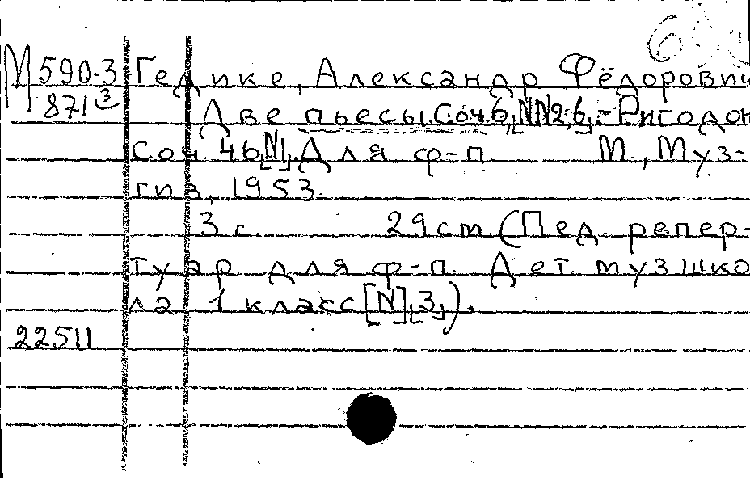 М 590-3 Гедике, Александр Фёдорович
871 3 Две пьесы. Соч 6, NN2,6,-Ригодон
Соч 46, [N]1. Для ф-п. М, Муз-
гиз, 1953.
3 с. 29 cm (Пед репер-
туар для ф-п. Дет муз шко
ла 1 класс [N] 3).
22511